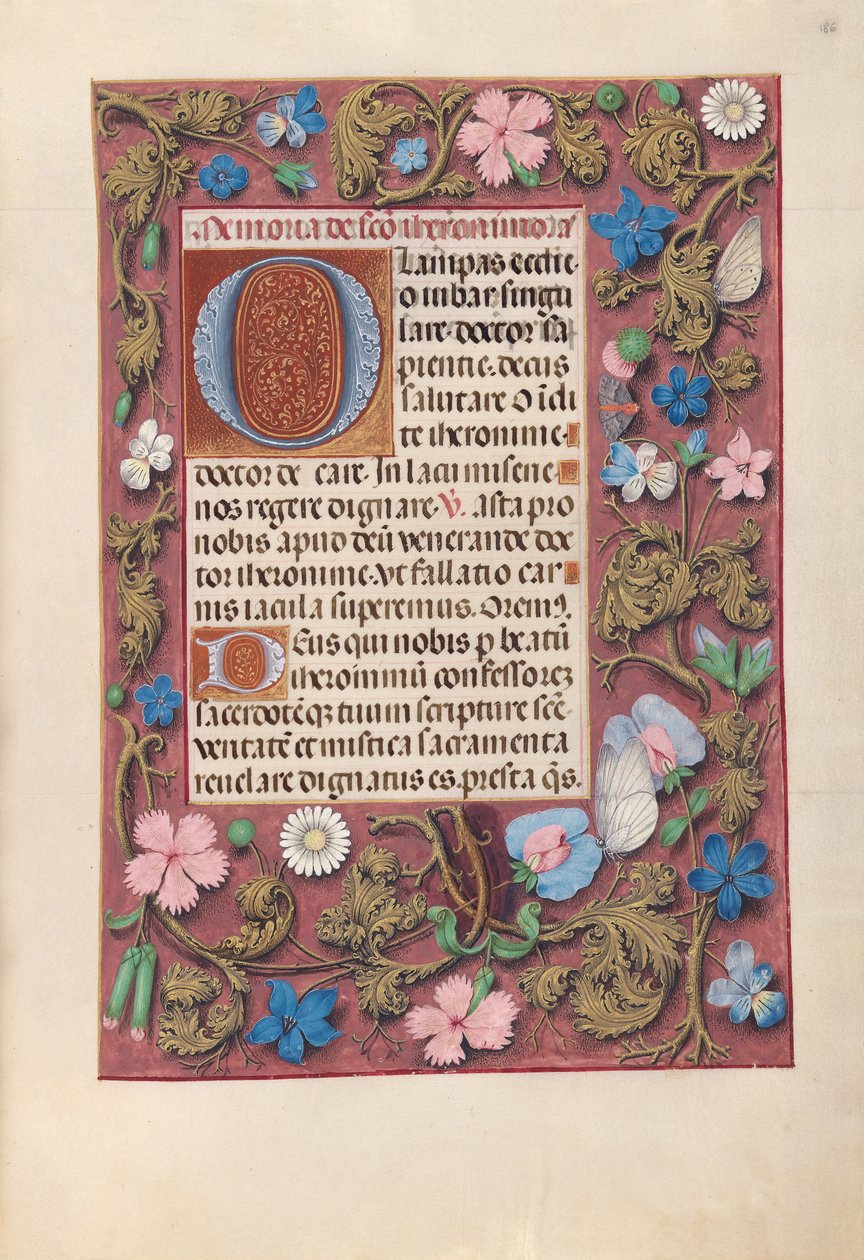 186
Memoria de scō iheronimo a
O Lampas ecclie.
o iubar singu
lare doctor sa
pientie. decus
salutare O īcli
te iheronime.
doctor de care. In lacu misene
nos regere dignare. V. asta pro
nobis apud deū venerande doc
tor iheronime. Vt fallatio car
nis iacula superemus. Orem9.
Deus qui nobis p beatū
iheronimū confessorez
sacerdotēqz tuum scripture scē
veritatē et mistica sacramenta
reuelare dignatus es. presta q̄s.